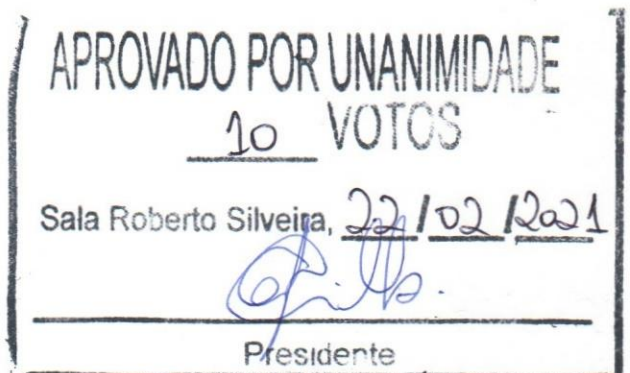 APROVADO POR UNANIMIDADE
10 VOTOS
Sala Roberto Silveira, 22/02/2021
Presidente